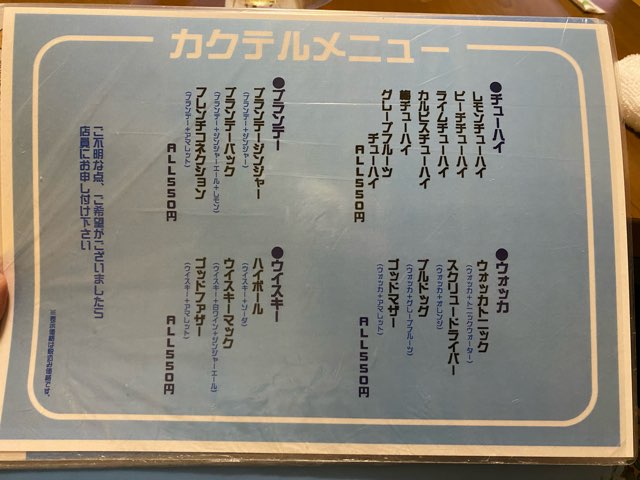 カクテルメニュー
●チューハイ
レモンチューハイ
ピーチチューハイ
ライムチューハイ
カルピスチューハイ
梅チューハイ
グレープフルーツ
チューハイ
ALL550円
●ウォッカ
ウォッカトニック
(ウォッカ+トニックウォーター)
スクリュードライバー
(ウォッカ+オレンジ)
ブルドッグ
(ウォッカ+グレープフルーツ)
ゴッドマザー
(ウォッカ+アマレット)
ALL550円
●ブランデー
ブランデージンジャー
(ブランデー+ジンジャー)
ブランデーバック
(ブランデー+ジンジャーエール+レモン)
フレンチコネクション
(ブランデー+アマレット)
ALL550円
●ウイスキー
ハイボール
(ウイスキー+ソーダ)
ウイスキーマック
(ウイスキー+白ワイン+ジンジャーエール)
ゴッドファザー
(ウイスキー+アマレット)
ALL550円
ご不明な点、ご希望がございましたら
店員にお申し付け下さい
※表示価格は税込み価格です。